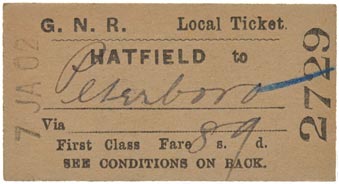 G. N. R. Local Ticket.
HATFIELD to
Peterboro
Via
First Class Fare 8 s. 9 d.
SEE CONDITIONS ON BACK.
7 JA 02
2729